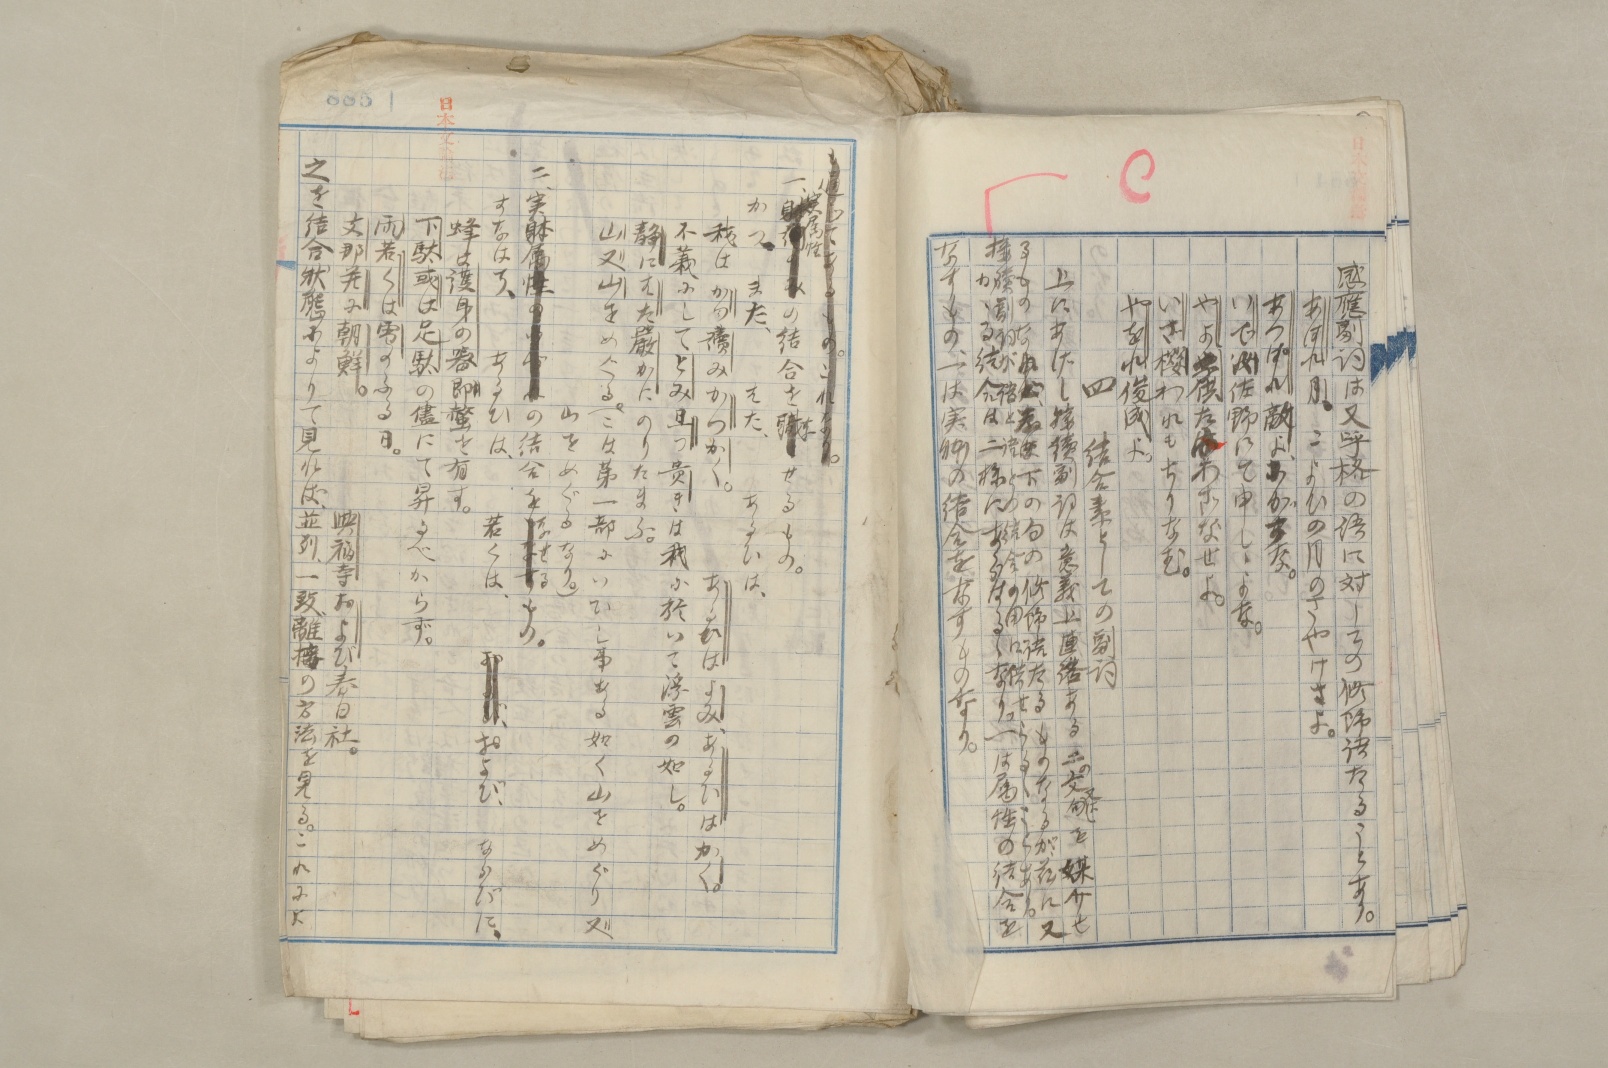 感應副詞は又呼格の語に対しての修飾語たることあり。
あはれ月。こよひの月のさやけさよ。
あつぱれ敵よ、
いでや佐野にて申しゝよな。
やよ
いざ櫻われもちりなむ。
やをれ俊成よ。
四 結合素としての副詞
上にあげし接續副詞は意義上連絡ある二の文又は句を媒介せ
下の句の修飾語たるものなるが、茲に又
接續副詞が語と語との結合の用に供せらるゝことあり。
かゝる結合は二様にあらはるゝなり。一は属性の結合を
なすもの、二は実躰の結合をなすものなり。
一、属性の結合を せるもの。
かつ、また、はた、あるひは、
我はかつ讀みかつかく。あるひはよみ、あるひはかく。
不義にしてとみ且つ貴きは我に於いて浮雲の如し。
静にはた厳かにのりたまふ。
山又山をめぐる。(こは第一部にいひし事ある如く山をめぐり又
山をめぐるなり。)
二、実躰の結合をなせるもの。
すなはち、あるひは、若くは、および、ならびに、
蜂は護身の器即螫を有す。
下駄或は足駄の儘にて昇るべからず。
雨若くは雪のふる日。
支那并に朝鮮。
興福寺および春日社。
之を結合状態によりて見れば、並列、一致、離接の方法を見る。これによ
日本文